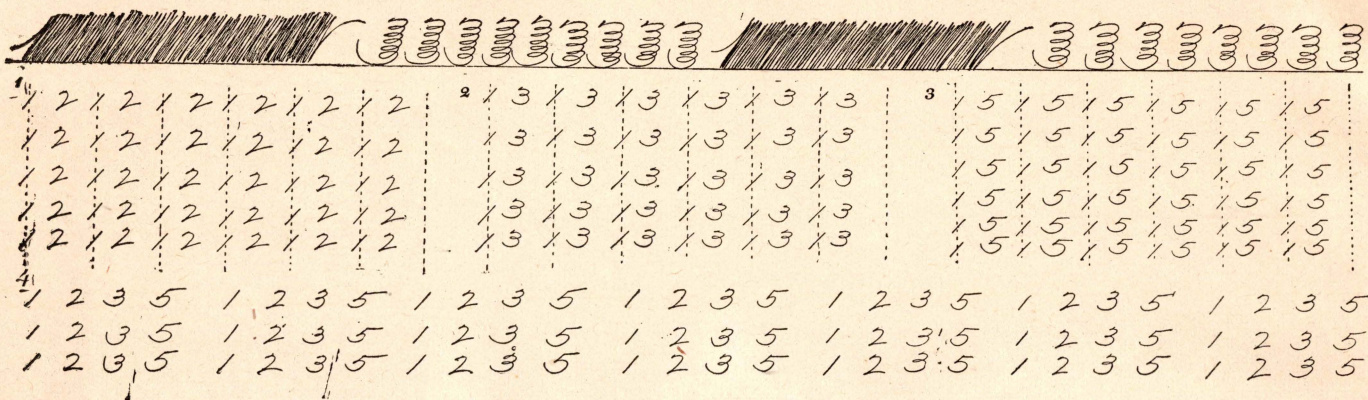 1
1 2 1 2 1 2 1 2 1 2 1 2
1 2 1 2 1 2 1 2 1 2 1 2
1 2 1 2 1 2 1 2 1 2 1 2
1 2 1 2 1 2 1 2 1 2 1 2
1 2 1 2 1 2 1 2 1 2 1 2
2
1 3 1 3 1 3 1 3 1 3 1 3
1 3 1 3 1 3 1 3 1 3 1 3
1 3 1 3 1 3 1 3 1 3 1 3
1 3 1 3 1 3 1 3 1 3 1 3
1 3 1 3 1 3 1 3 1 3 1 3
3
1 5 1 5 1 5 1 5 1 5 1 5
1 5 1 5 1 5 1 5 1 5 1 5
1 5 1 5 1 5 1 5 1 5 1 5
1 5 1 5 1 5 1 5 1 5 1 5
1 5 1 5 1 5 1 5 1 5 1 5
1 5 1 5 1 5 1 5 1 5 1 5
4
1 2 3 5 1 2 3 5 1 2 3 5 1 2 3 5 1 2 3 5 1 2 3 5 1 2 3 5
1 2 3 5 1 2 3 5 1 2 3 5 1 2 3 5 1 2 3 5 1 2 3 5 1 2 3 5
1 2 3 5 1 2 3 5 1 2 3 5 1 2 3 5 1 2 3 5 1 2 3 5 1 2 3 5